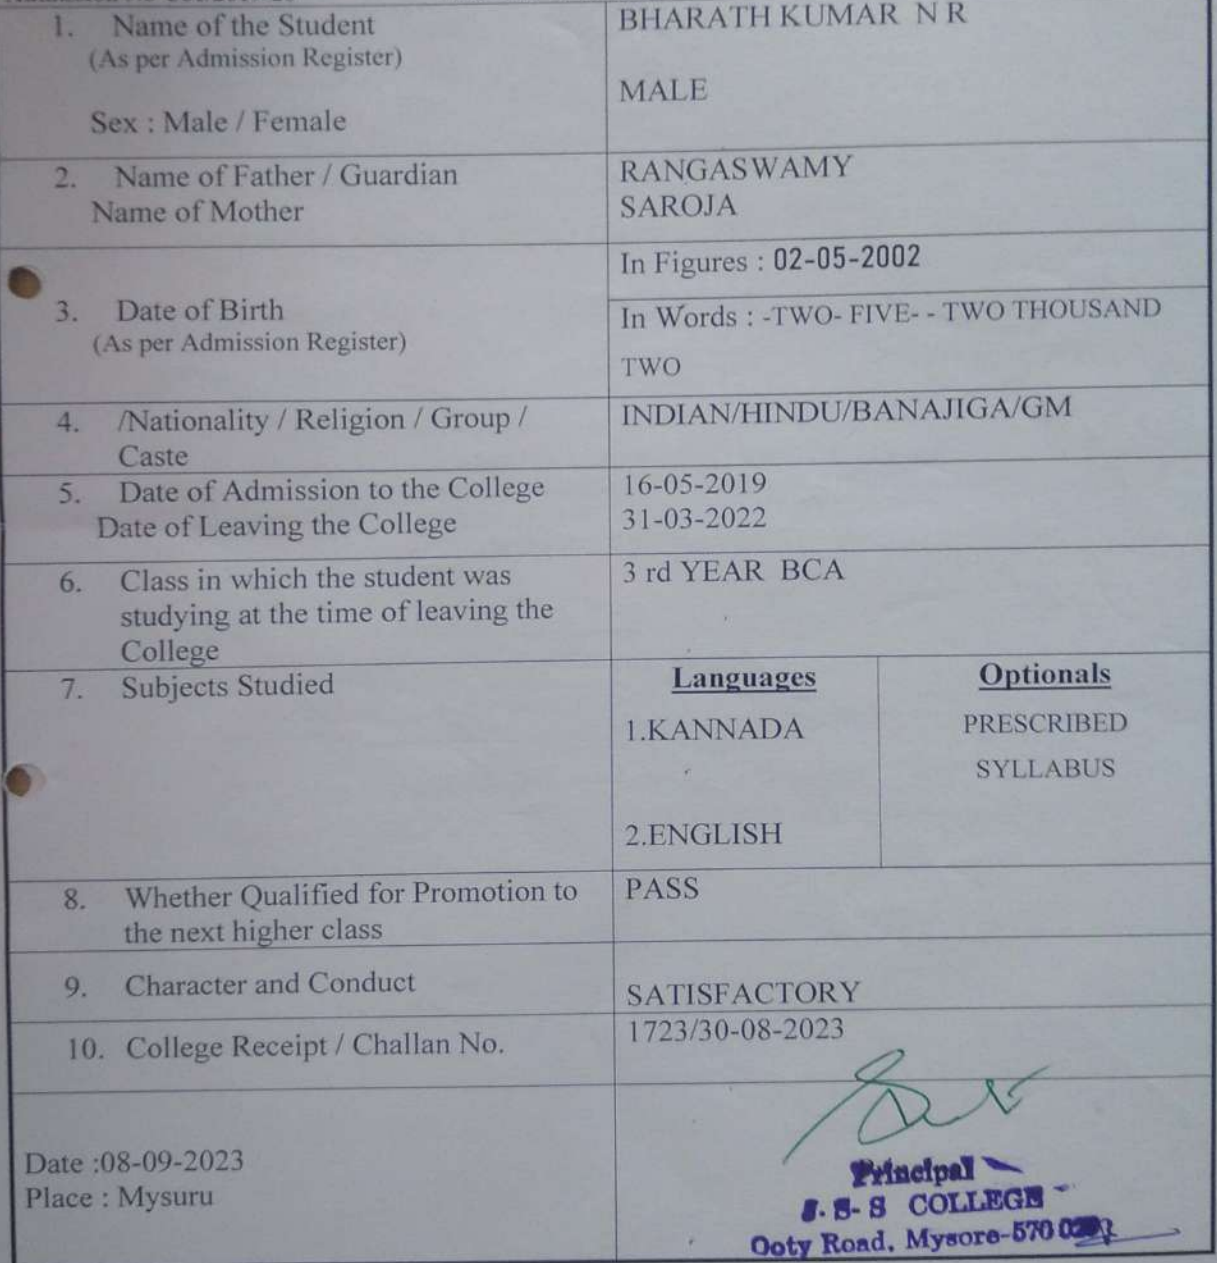 1. Name of the Student
(As per Admission Register)
BHARATH KUMAR N R
Sex : Male / Female
MALE
2. Name of Father / Guardian
RANGASWAMY
Name of Mother
SAROJA
3. Date of Birth
(As per Admission Register)
In Figures : 02-05-2002
In Words : -TWO- FIVE- - TWO THOUSAND
TWO
4. /Nationality / Religion / Group /
Caste
INDIAN/HINDU/BANAJIGA/GM
5. Date of Admission to the College
16-05-2019
Date of Leaving the College
31-03-2022
6. Class in which the student was
studying at the time of leaving the
College
3 rd YEAR BCA
7. Subjects Studied
Languages
1.KANNADA
2.ENGLISH
Optionals
PRESCRIBED
SYLLABUS
8. Whether Qualified for Promotion to
the next higher class
PASS
9. Character and Conduct
SATISFACTORY
10. College Receipt / Challan No.
1723/30-08-2023
Date :08-09-2023
Place : Mysuru
Principal
S- S COLLEGE
Ooty Road, Mysore-570